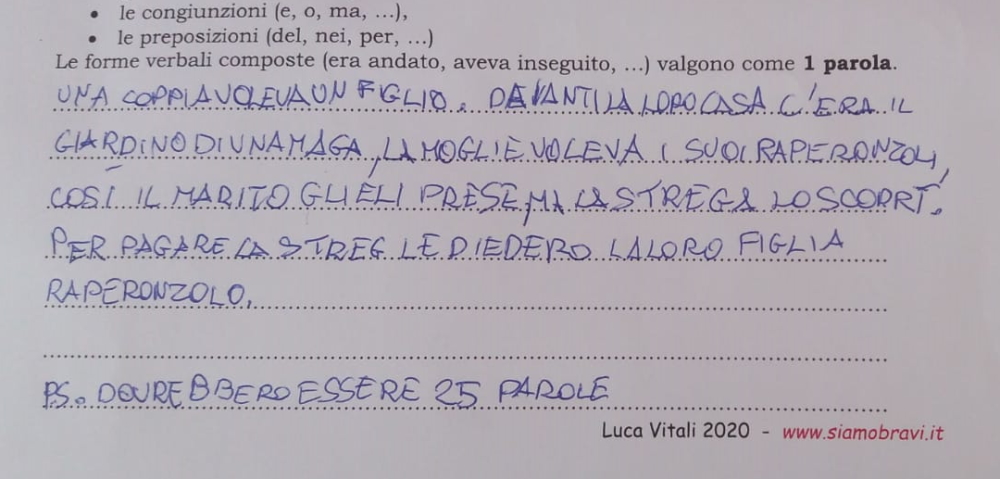 • le congiunzioni (e, o, ma, ...),
• le preposizioni (del, nei, per, ...)
Le forme verbali composte (era andato, aveva inseguito, ...) valgono come 1 parola.
UNA COPPIA VOLEVA UN FIGLIO. DAVANTI LA LORO CASA C'ERA IL
GIARDINO DI UNA MAGA, LA MOGLIE VOLEVA I SUOI RAPERONZOLI,
COSÌ IL MARITO GLIELI PRESE, MA LA STREGA LO SCOPRÌ.
PER PAGARE LA STREG LE DIEDERO LA LORO FIGLIA
RAPERONZOLO.
PS. DOVREBBERO ESSERE 25 PAROLE
Luca Vitali 2020 - www.siamobravi.it